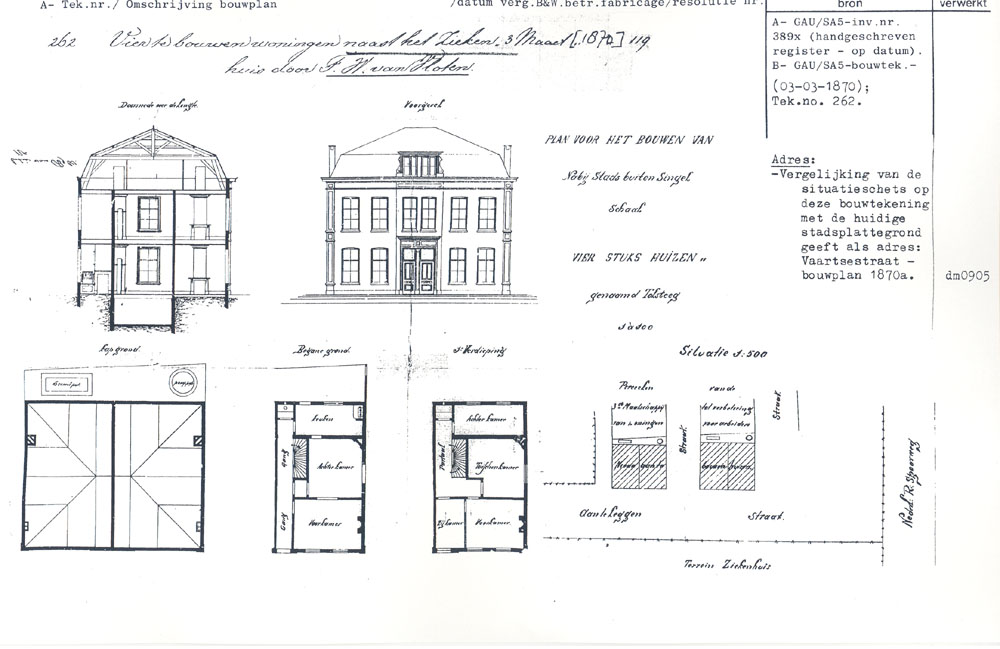 A- Tek.nr./ Omschrijving bouwplan /datum verg.B&W.betr.fabricage/resolutie nr.
bron
verwerkt
262 Vier te bouwen woningen naast het Zieken- 3 Maart [1870] 119
huis door F. W. van Vloten.
A- GAU/SA5-inv.nr.
389x (handgeschreven
register - op datum).
B- GAU/SA5-bouwtek.-
(03-03-1870);
Tek.no. 262.
Adres:
-Vergelijking van de
situatieschets op
deze bouwtekening
met de huidige
stadsplattegrond
geeft als adres:
Vaartsestraat -
bouwplan 1870a.
dm0905
Doorsnede over de lengte
Voorgevel
PLAN VOOR HET BOUWEN VAN
Nabij Stads buiten Singel
Schaal
VIER STUKS HUIZEN
genaamd Tolsteeg
1 à 100
Kapgrond
Begane grond
1e Verdieping
Situatie 1:500
Keuken
Gang
Achterkamer
Gang
Voorkamer
Achter kamer
Portaal
Tusschen kamer
Zijkamer
Voorkamer
Perceelen van de
3de Maatschappij tot verbetering
van woningen voor arbeiders
Straat
Straat
Nieuw aan te bouwen huizen
Aan te leggen Straat
Terrein Ziekenhuis
Nederl. R. Spoorweg